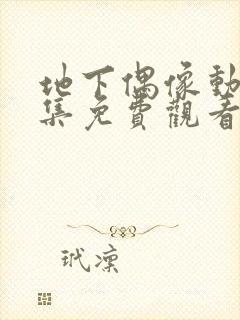 地下偶像動
集免費觀看
玳凜